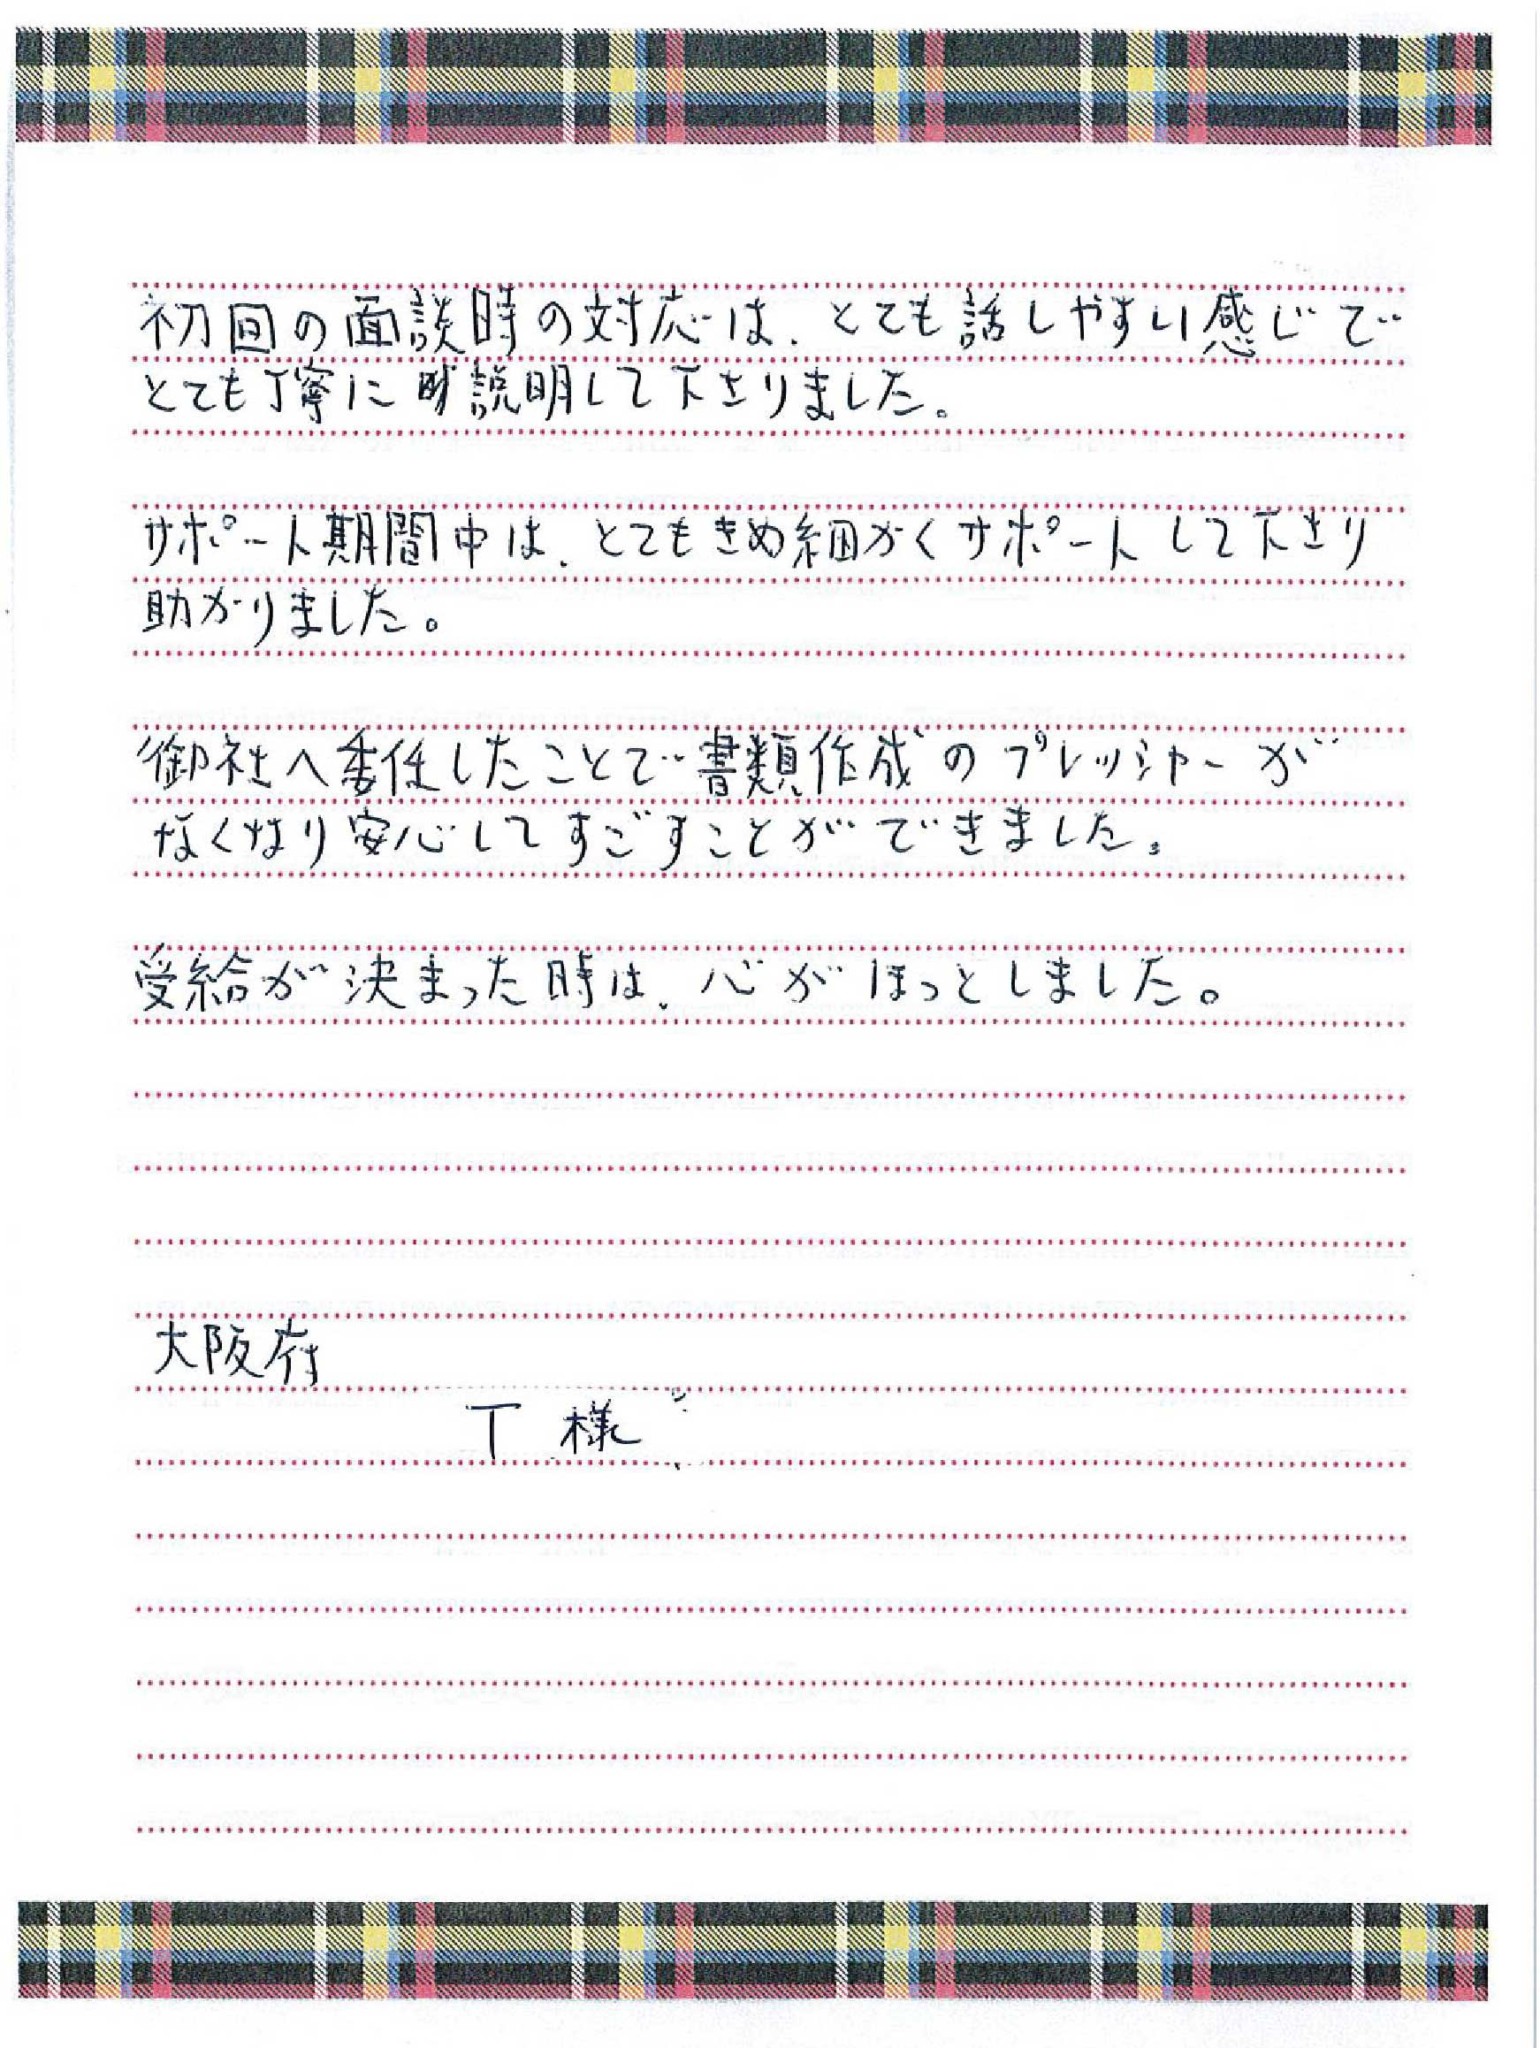 初回の面談時の対応は、とても話しやすい感じで
とても丁寧に説明して下さりました。
サポート期間中は、とてもきめ細かくサポートして下さり
助かりました。
御社へ委任したことで書類作成のプレッシャーが
なくなり安心してすごすことができました。
受給が決まった時は、心がほっとしました。
大阪府
T 様